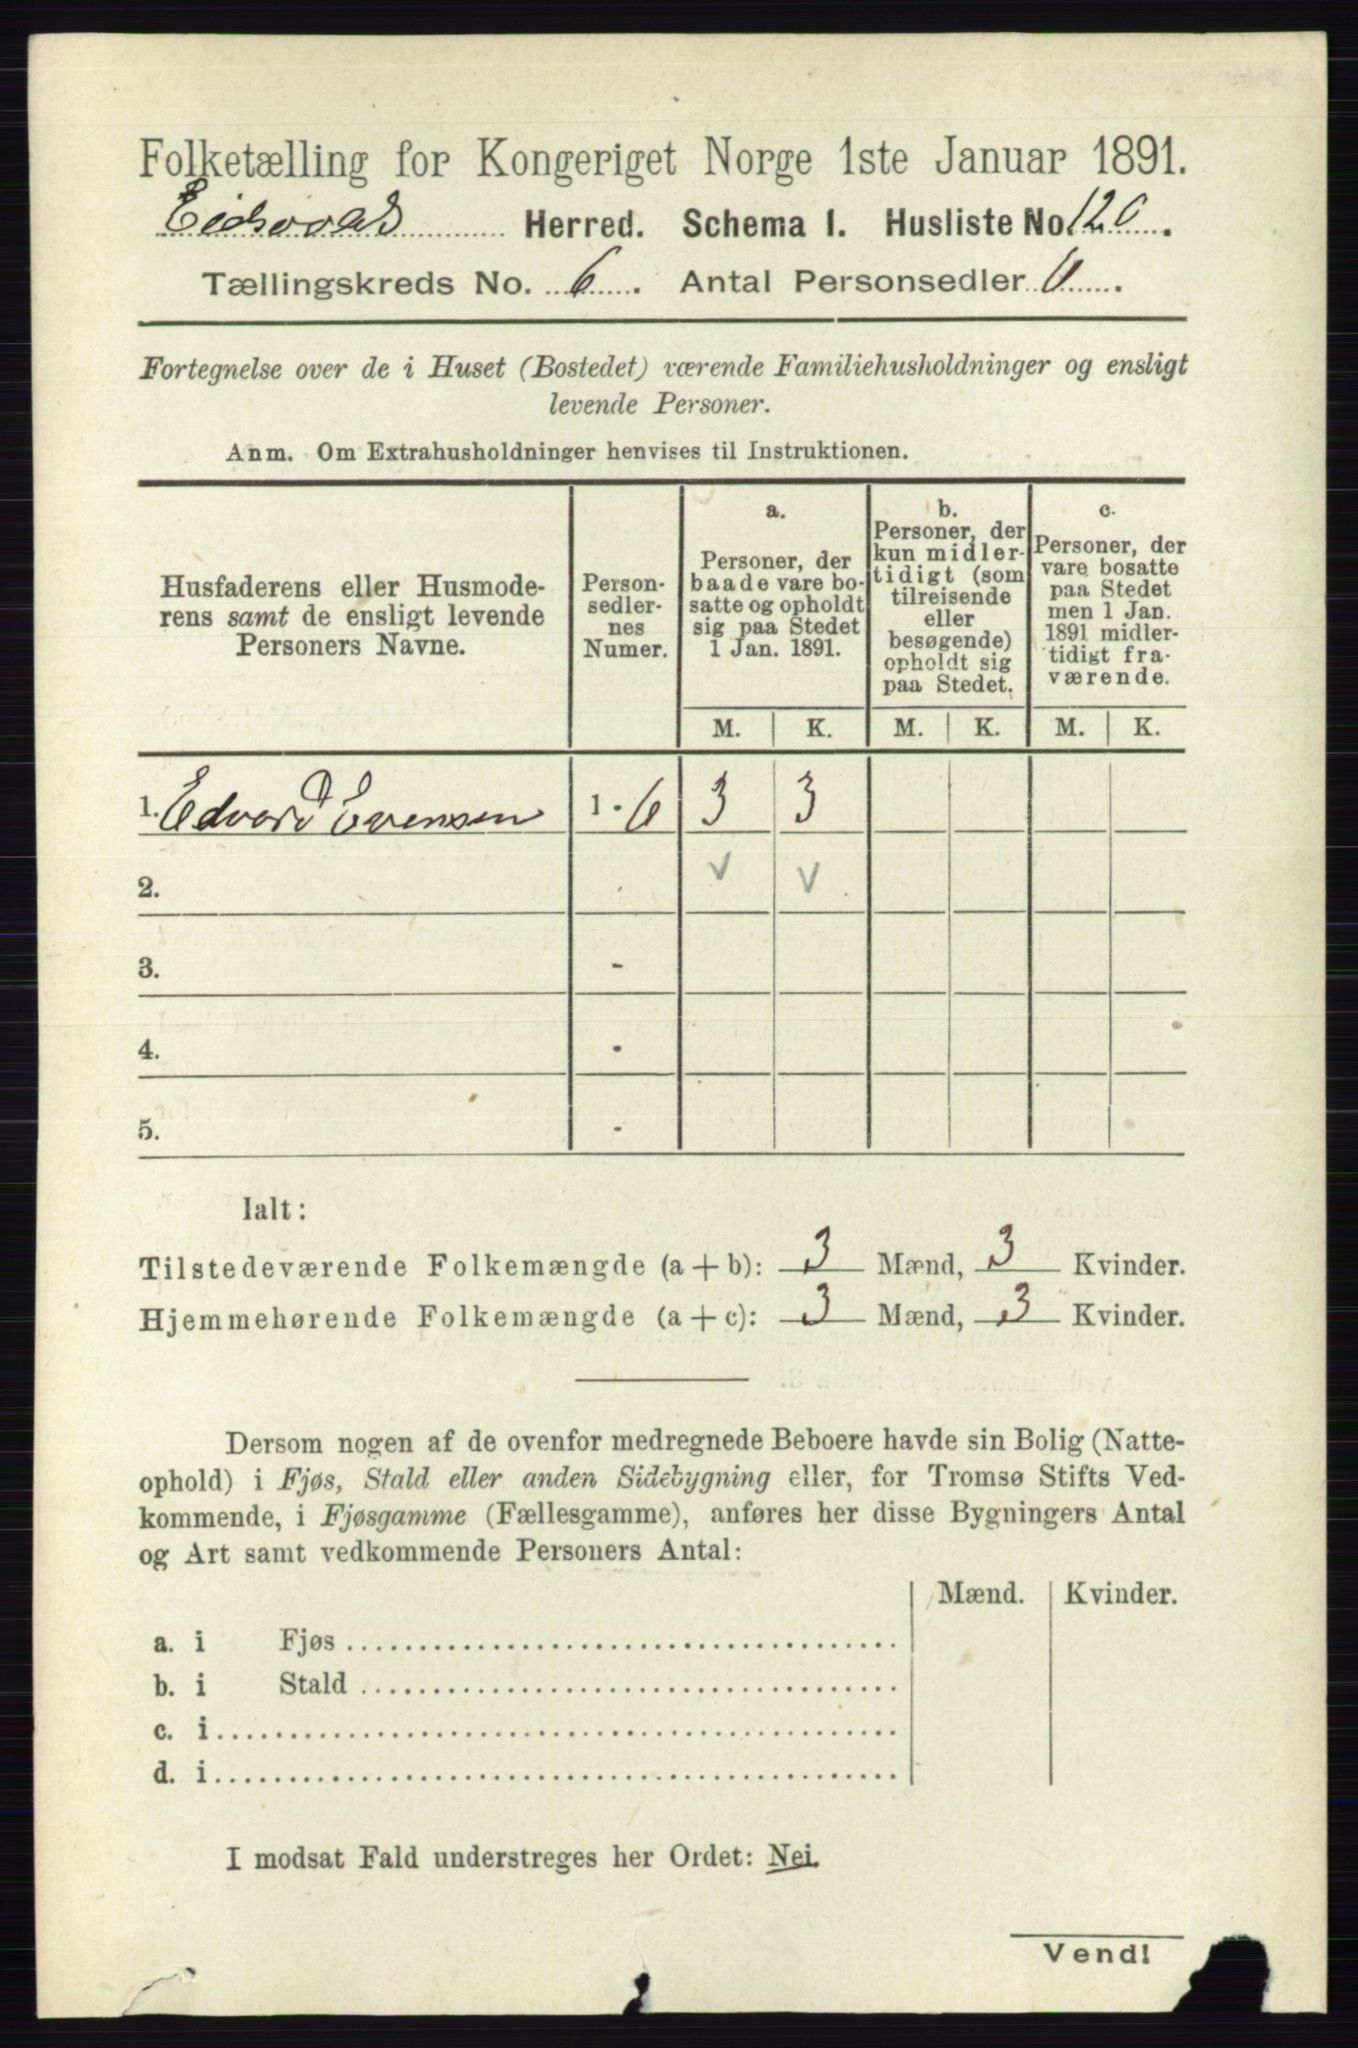 Folketælling for Kongeriget Norge 1ste Januar 1891.
Eidsvold Herred. Schema I. Husliste No. 120.
Tællingskreds No. 6. Antal Personsedler 6.
Fortegnelse over de i Huset (Bostedet) værende Familiehusholdninger og ensligt
levende Personer.
Anm. Om Extrahusholdninger henvises til Instruktionen.
Husfaderens eller Husmode-
rens samt de ensligt levende
Personers Navne.
Person-
sedler-
nes
Numer.
a.
Personer, der
baade vare bo-
satte og opholdt
sig paa Stedet
1 Jan. 1891.
b.
Personer, der
kun midler-
tidigt (som
tilreisende
eller
besøgende)
opholdt sig
paa Stedet.
c.
Personer, der
vare bosatte
paa Stedet
men 1 Jan.
1891 midler-
tidigt fra-
værende.
M. K. M. K. M. K.
1. Edvard Evensen 1 - 6 3 3
2. v v
3. -
4. -
5. -
Ialt:
Tilstedeværende Folkemængde (a + b): 3 Mænd, 3 Kvinder.
Hjemmehørende Folkemængde (a + c): 3 Mænd, 3 Kvinder.
Dersom nogen af de ovenfor medregnede Beboere havde sin Bolig (Natte-
ophold) i Fjøs, Stald eller anden Sidebygning eller, for Tromsø Stifts Ved-
kommende, i Fjøsgamme (Fællesgamme), anføres her disse Bygningers Antal
og Art samt vedkommende Personers Antal:
Mænd. Kvinder.
a. i Fjøs
b. i Stald
c. i
d. i
I modsat Fald understreges her Ordet: Nei.
Vend!